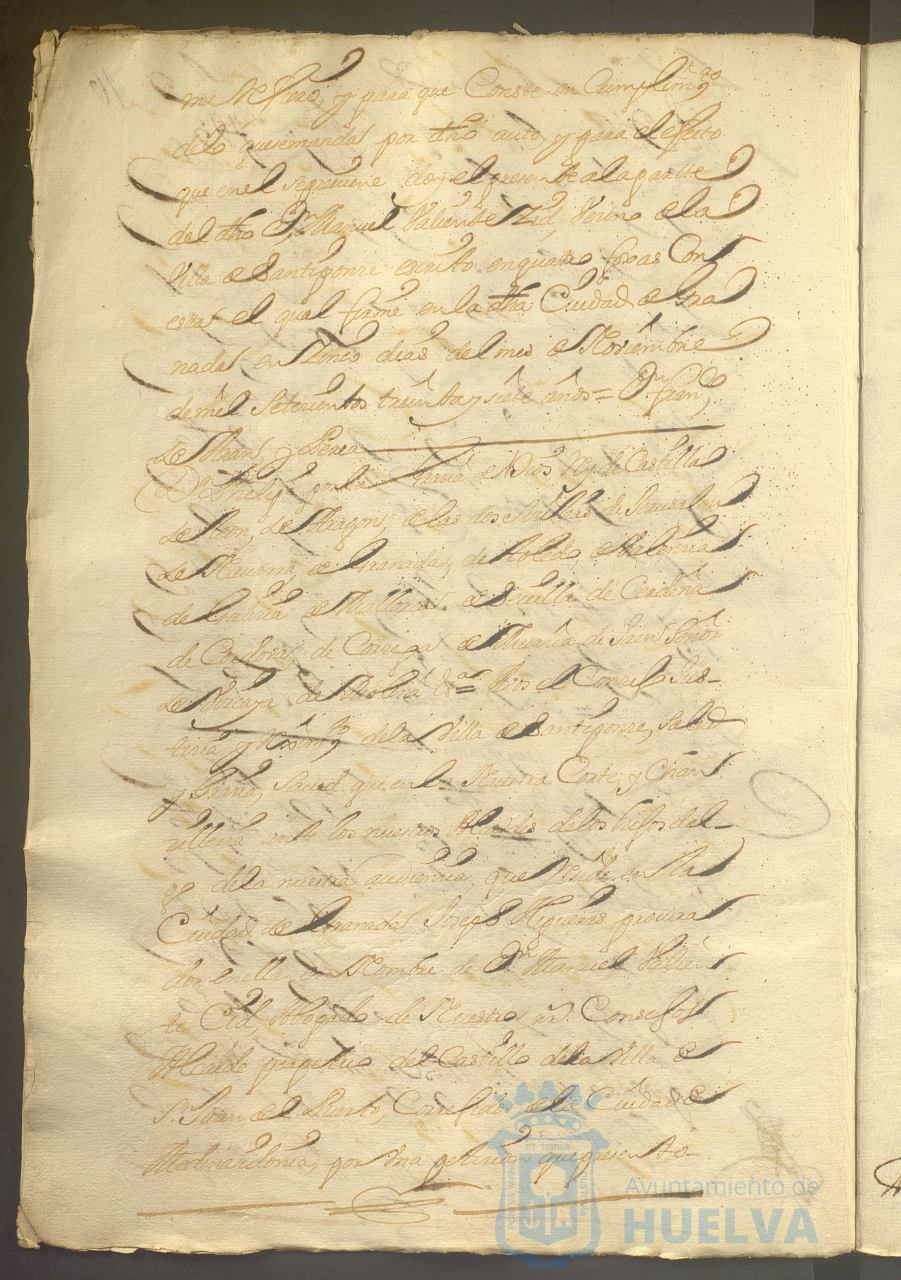 me Refiero, y para que Conste en Cumplim.to
delo quesemanda por dho auto, y para el efecto
que enel seprebiene doy el presente ala parte
del dho D.n Manuel Valiente Zid, Vezino de la
Villa de Santiponze escrito en quatro foxas Con
esta el qual firmé en la dha Ciudad de Gra
nada, en Zinco dias del mes de Noviembre
de mil setecientos treinta y siete años = D.n Fran.co
de y Perea
D.n Phelipe por la Gracia de Dios Rey de Castilla
de Leon, de Aragon, de las dos Sicilias de Jerusalen
de Navarra de Granada, de Toledo, de Valencia
de Galicia de Mallorca de Sevilla de Cerdeña
de Cordova, de Corsega de Murcia de Jaen Señor
de Vizcaya, de Molina &.a Avos el Consejo Jus-
ticia, y Rexim.to dela Villa de Santiponze, salud
y Gracia, saved que en la Nuestra Corte, y Chan
cilleria ante los nuestros Alcaldes de los hijos dal-
go dela nuestra audiencia, que Reside en la
Ciudad de Granada Joseph Higueras procura
dor en ella en Nombre de D.n Manuel Valien
te Cid, Abogado de Nuestros R.s Consejos
Alcaide perpetuo del Castillo dela Villa de
S.n Juan del Puerto, Corregidor dela Ciudad de
Medinasidonia, por Una peticion que presento-
Ayuntamiento de
HUELVA